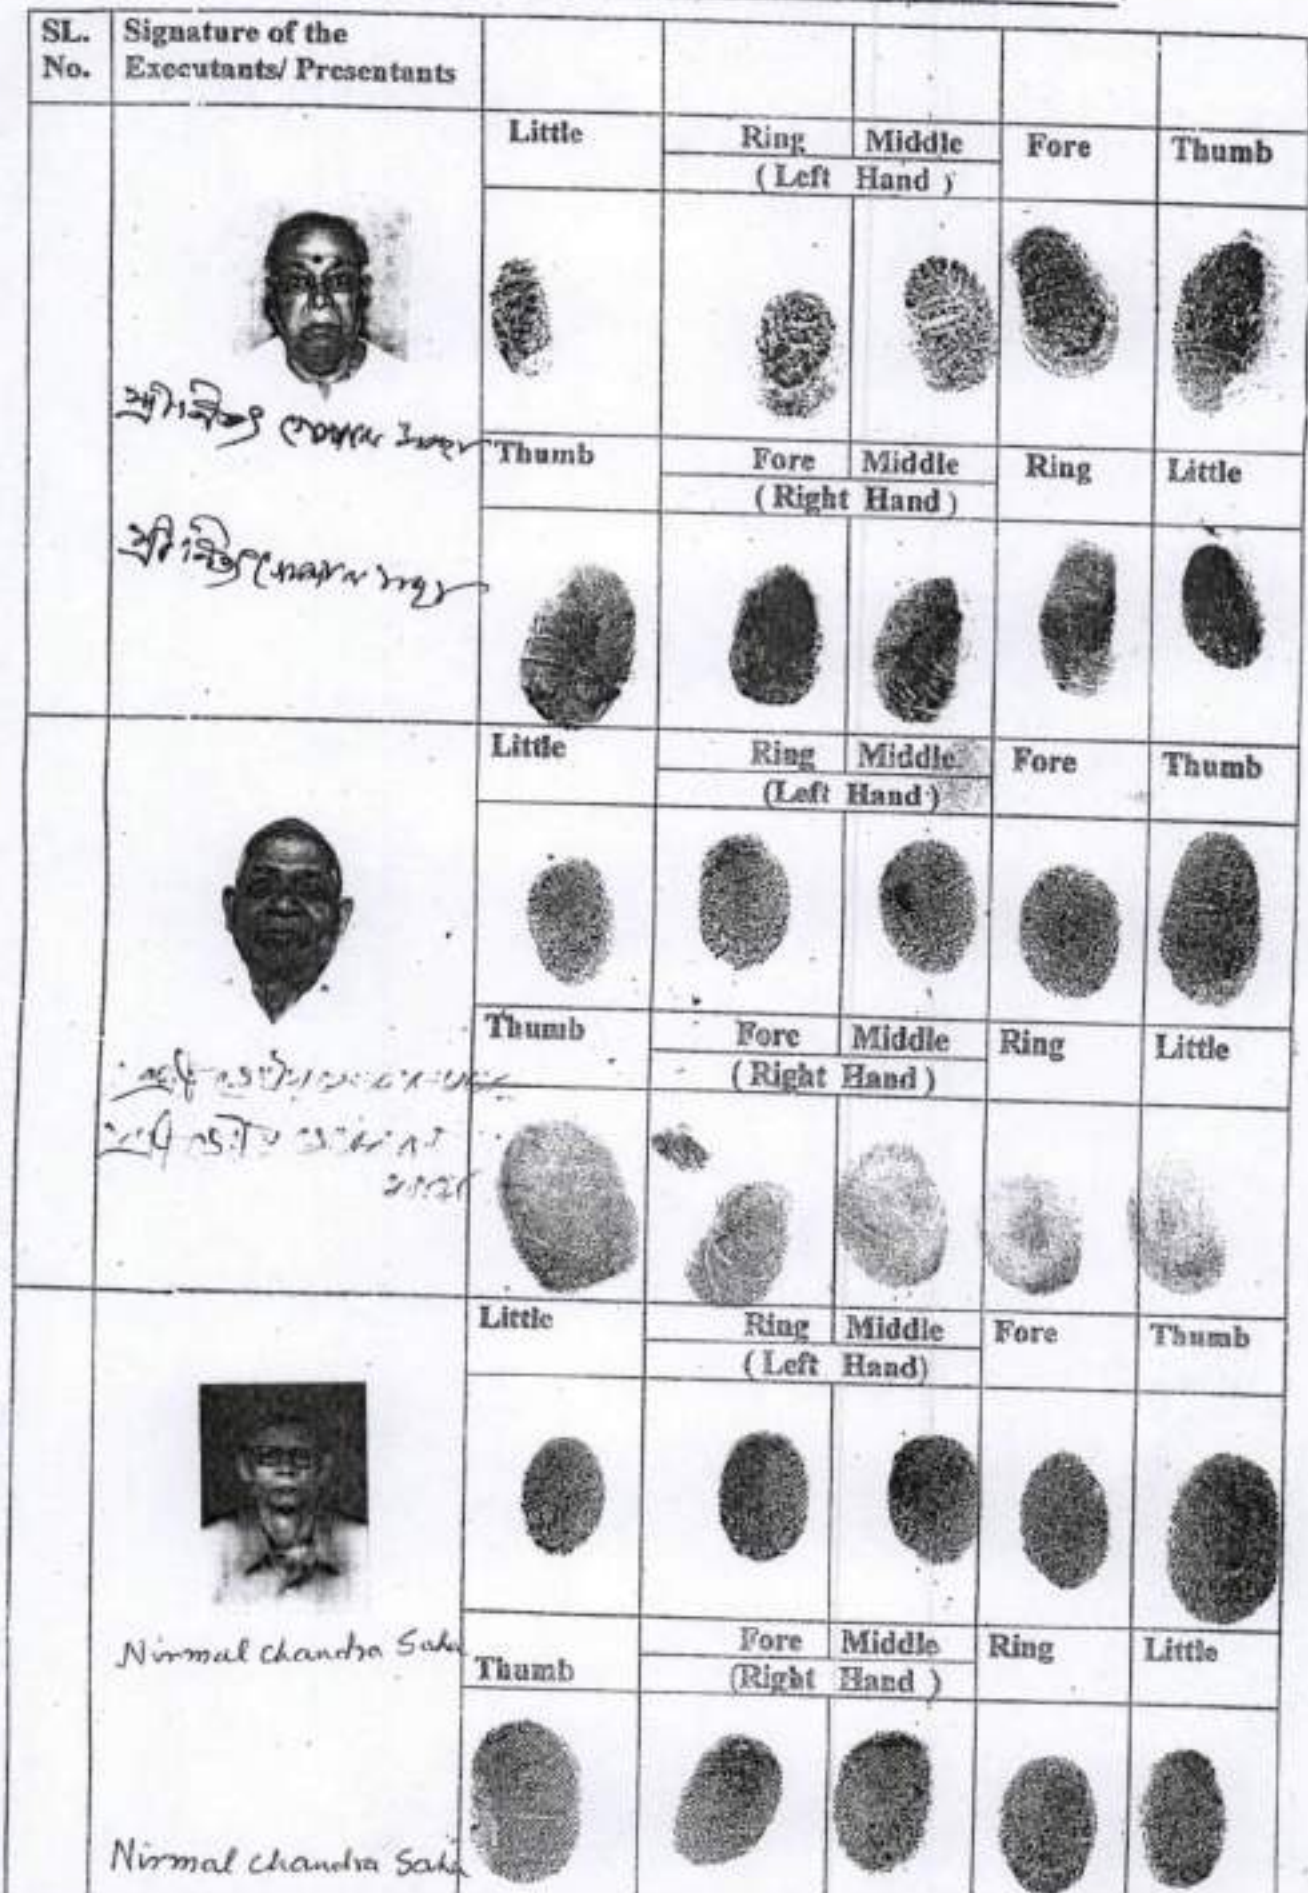 SL. No. Signature of the Executants/ Presentants
Little Ring Middle Fore Thumb
( Left Hand )
Thumb Fore Middle Ring Little
( Right Hand )
Little Ring Middle Fore Thumb
(Left Hand )
Thumb Fore Middle Ring Little
( Right Hand )
Little Ring Middle Fore Thumb
( Left Hand)
Nirmal Chandra Saha
Thumb Fore Middle Ring Little
(Right Hand )
Nirmal Chandra Saha